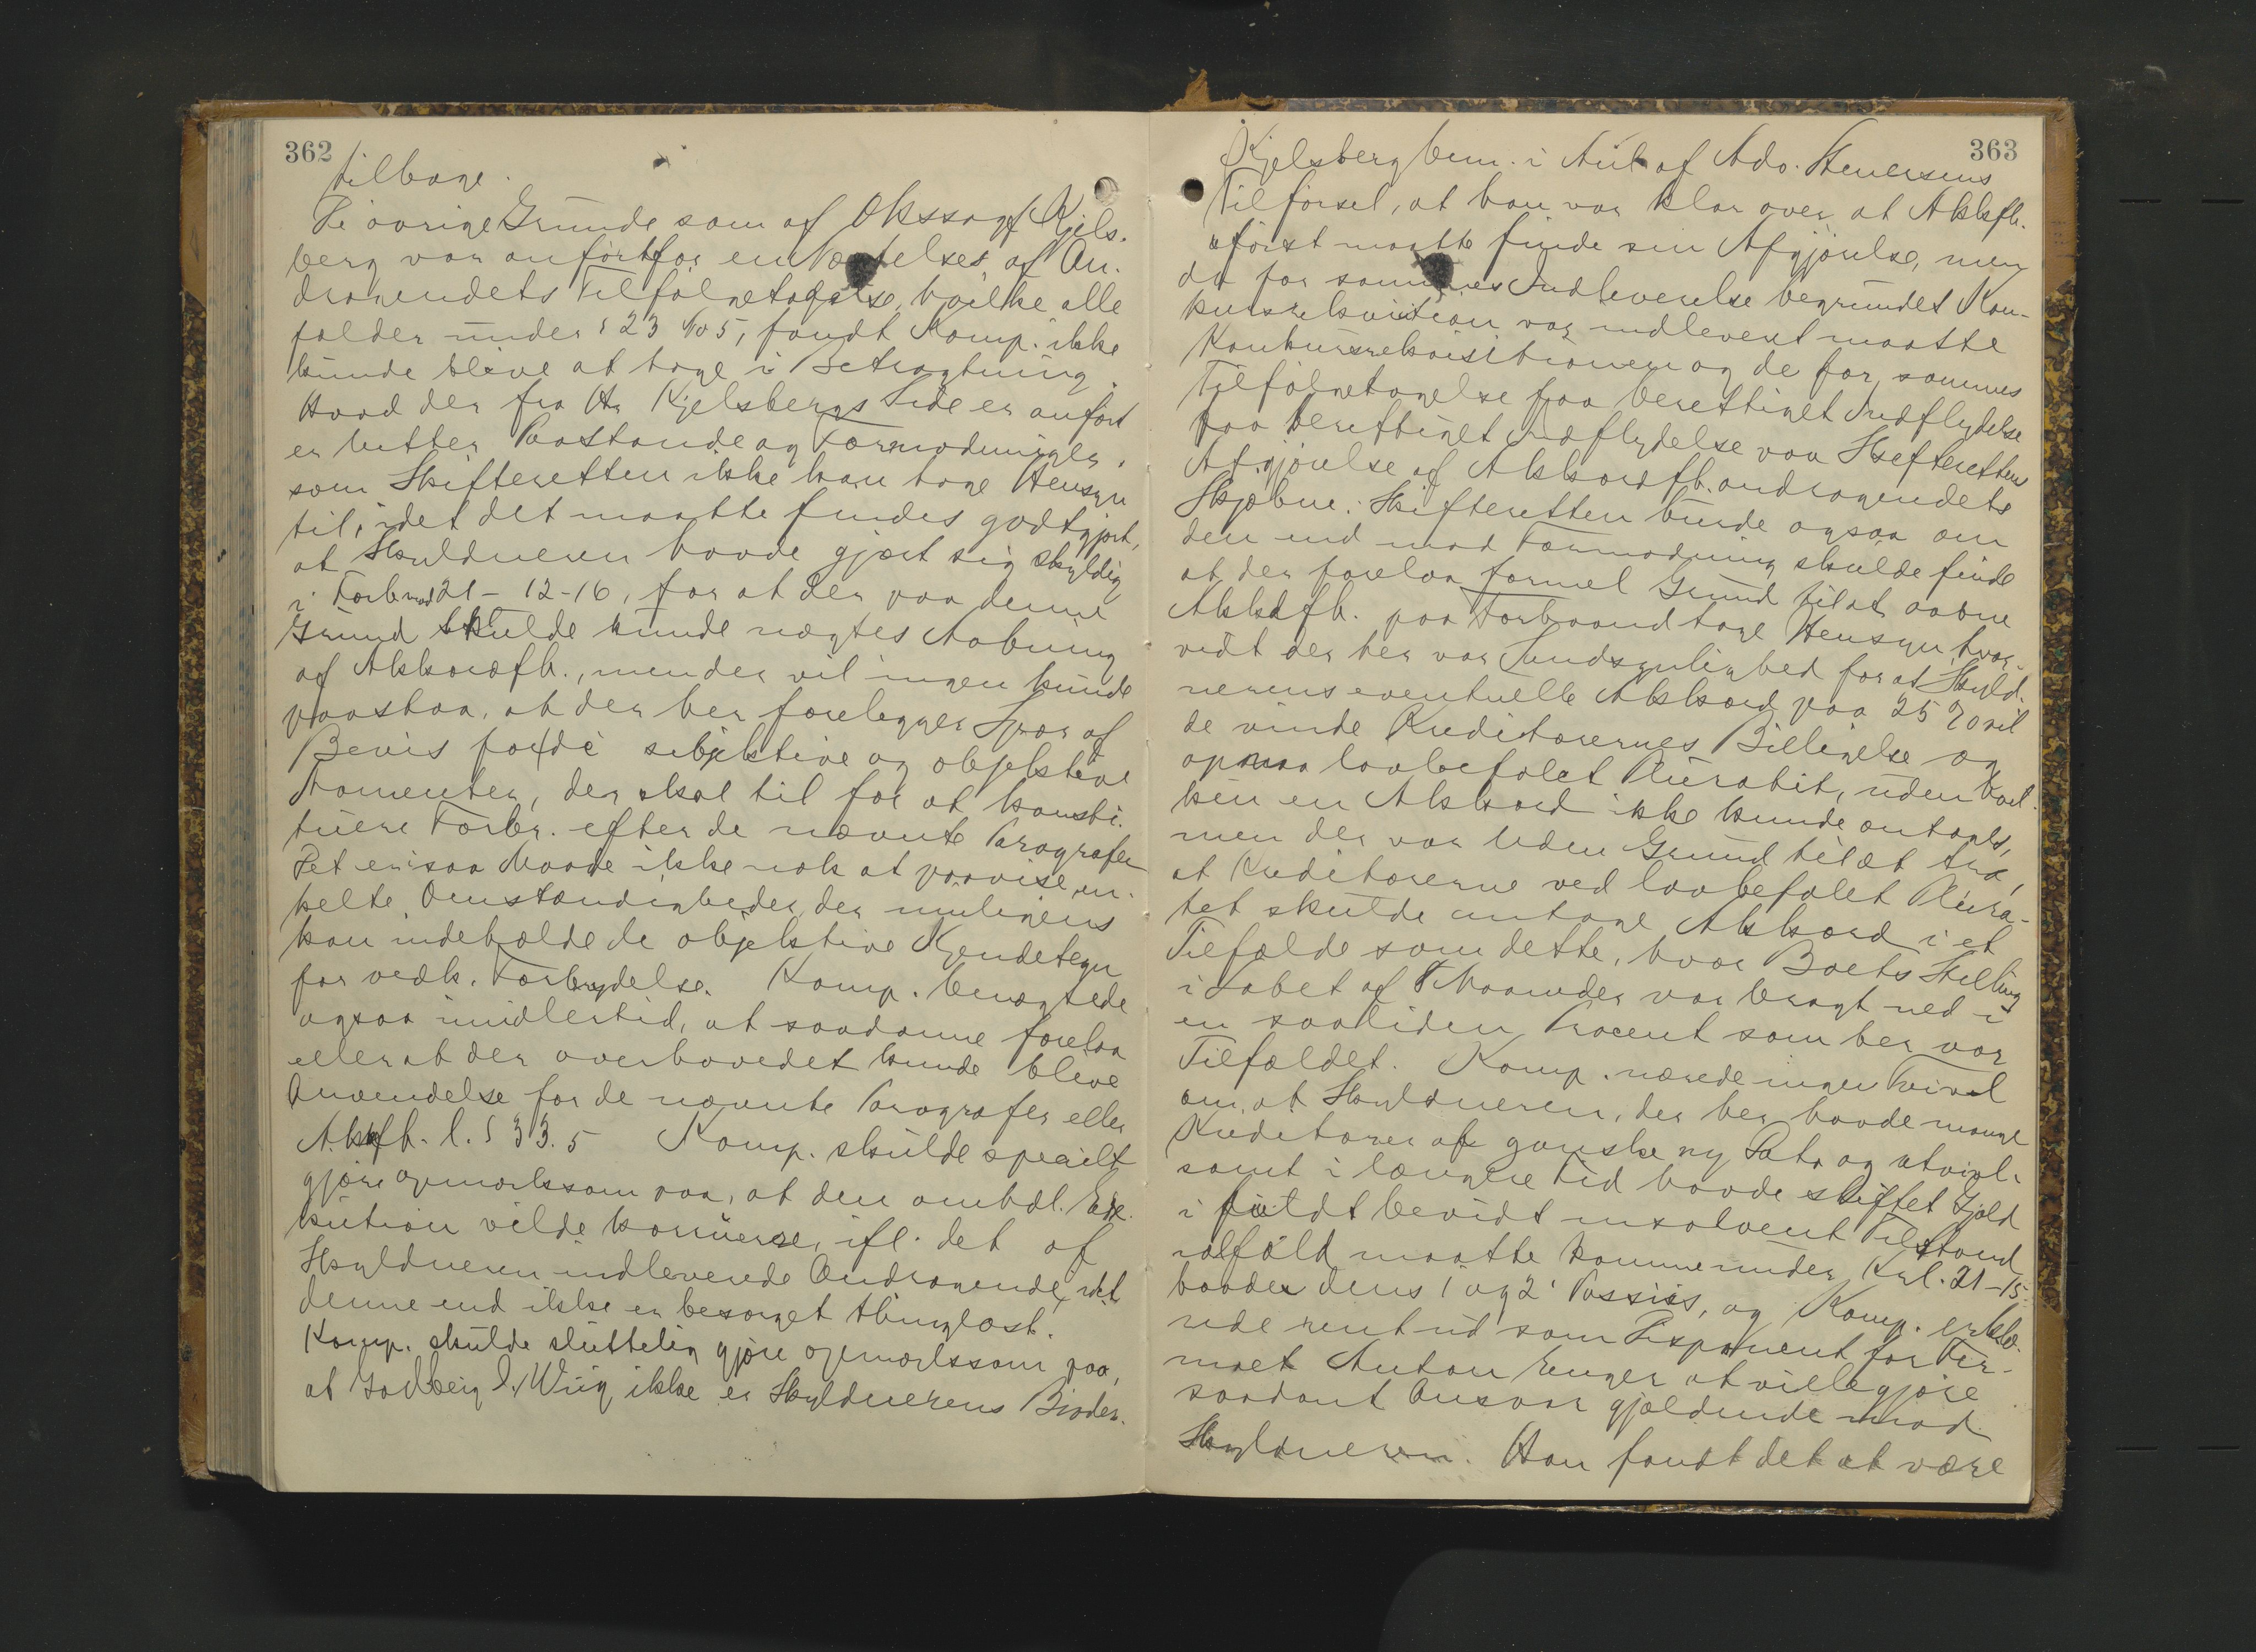 362
tilbage.
De øvrige Grunde som af Okssagf Kjels-
berg var anført for en Nægtelse af An-
dragendets Tilfølgetagelse, hvilke alle
falder under § 23 No 5, fandt Komp. ikke
kunde blive at tage i Betragtning.
Hvad der fra Hr Kjelsbergs Side er anført
er lutter Paastande og Formodninger,
som Skifteretten ikke kan tage Hensyn
til, idet det maatte findes godtgjort,
at Skyldneren havde gjort sig skyldig
i Forbr mod 21-12-16, for at der paa denne
Grund skulde kunde nægtes Aabning
af Akkordfh., men der vil ingen kunde
paastaa, at der her forelegger Spor af
Bevis for de subjektive og objektive
Momenter, der skal til for at konsti-
tuere Forbr. efter de nævnte Paragrafer
Det er i saa Maade ikke nok at paavise en-
kelte Omstændigheder, der muligens
kan indeholde de objektive Kjendetegn
for vedk. Forbrydelse. Komp. benægtede
ogsaa imidlertid, at saadanne forelaa
eller at der overhovedet kunde blive
Anvendelse for de nævnte Paragrafer eller
Akkfh. l. § 33.5 Komp. skulde specielt
gjøre opmerksom paa, at den omhdl. Exe-
kution vilde , ifl. det af
Skyldneren indleverede Andragende, idet
denne end ikke er besørget thinglæst.
Komp. skulde sluttelig gjøre opmærksom paa,
at Wiig ikke er Skyldnerens Broder.
363
Kjelsberg bem. i Anl. af Adv. Stenersens
Tilførsel, at han var klar over at Akkfh.
først maatte finde sin Afgjørelse, men
da før sammes Indleverelse begrundet Kon-
kursrekvisition var indleveret maatte
Konkursrekvisitionen og de for sammes
Tilfølgetagelse faa berettiget Indflydelse
faa berettiget Indflydelse paa Skifterettens
Afgjørelse af Akkordfh. andragendets
Skjæbne. Skifteretten burde ogsaa om
den end mod Formodning skulde finde
at der forelaa formel Grund til at aabne
Akkdfh. paa Forhaand tage Hensyn hvor-
vidt der her var Sandsynlighed for at Skyld-
nerens eventuelle Akkord paa 25 % vil
de vinde Kreditorernes Billigelse og
opnaa lovbefalet Pluralit, uden hvil-
ken en Akkord ikke kunde antages,
men der var uden Grund til at tro,
at Kreditorerne ved lovbefalet Plura-
tet skulde antage Akkord i et
Tilfælde som dette, hvor Boets Stilling
i Løbet af 8 Maaneder var bragt ned i
en saaliden Procent som her var
Tilfældet. Komp. nærede ingen Tvivl
om, at Skyldneren, der her havde mange
Kreditorer af ganske ny Dato og utvivl-
somt i længere Tid havde stiftet Gjæld
i fuldt bevidst insolvent Tilstand
ialfald maatte komme under Krl. 21-15
baade dens 1 og 2' Passus, og Komp. erklæ-
rede rent ud som Disponent for Fir-
maet Anton Enger at ville gjøre
saadant Ansvar gjældende mod
Skyldneren. Han fandt det at være